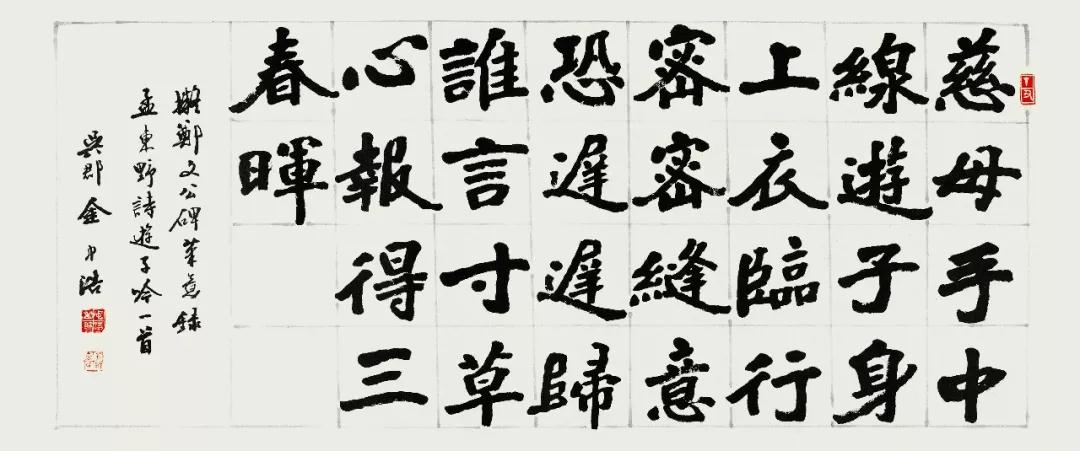 慈母手中
線遊子身
上衣臨行
密密縫意
恐遲遲歸
誰言寸草
心報得三
春暉
擬鄭文公碑筆意錄
孟東野詩遊子吟一首
吳郡金浩